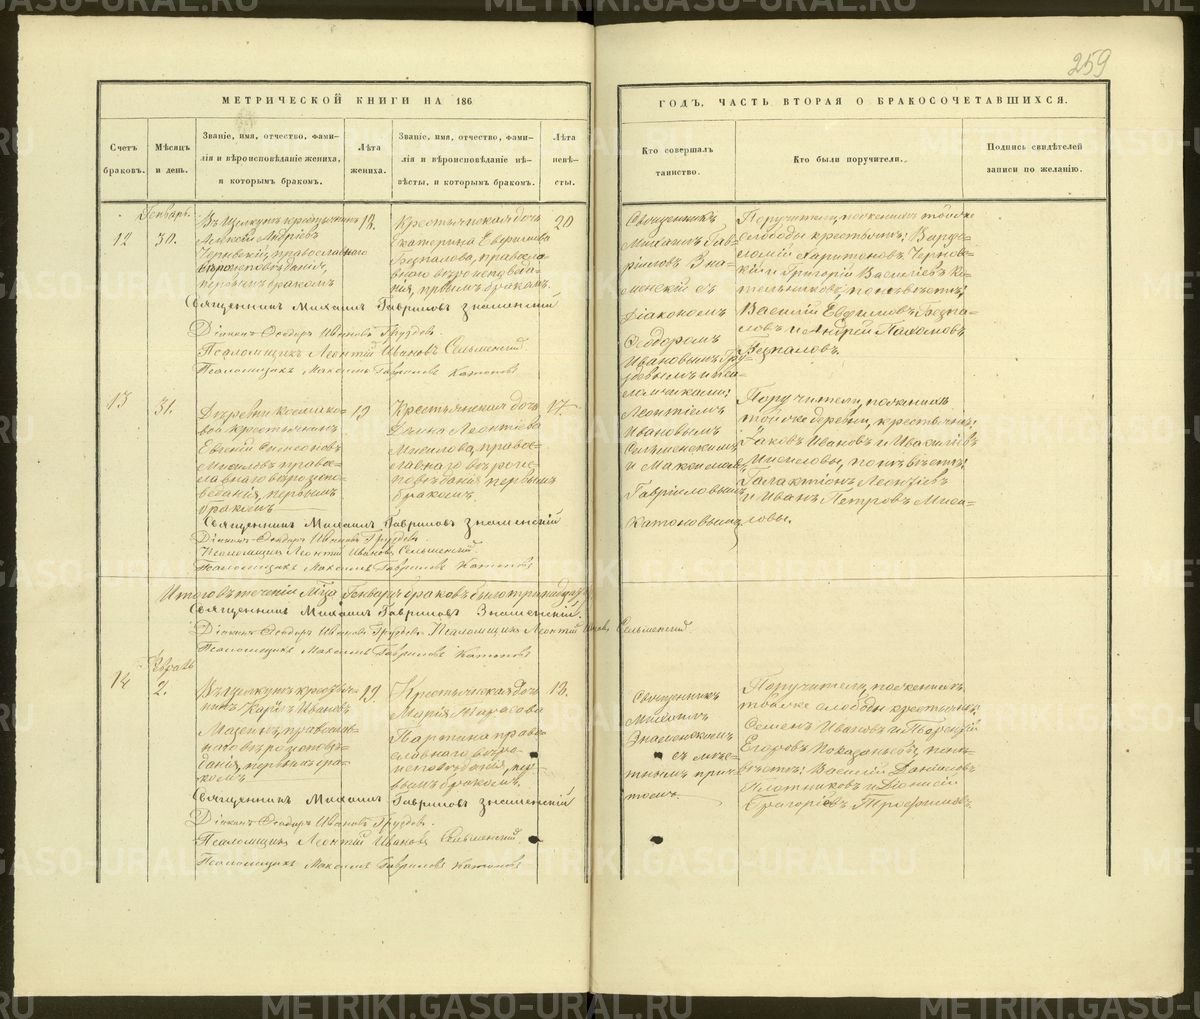 259
МЕТРИЧЕСКОЙ КНИГИ НА 186
ГОДЪ, ЧАСТЬ ВТОРАЯ О БРАКОСОЧЕТАВШИХСЯ.
Счетъ
браковъ.
Мѣсяцъ
и день.
Званіе, имя, отчество, фами-
лія и вѣроисповѣданіе жениха,
и которымъ бракомъ.
Лѣта
жениха.
Званіе, имя, отчество, фами-
лія и вѣроисповѣданіе не-
вѣсты, и которымъ бракомъ.
Лѣта
невѣ-
сты.
Кто совершалъ
таинство.
Кто были поручители.
Подпись свидѣтелей
записи по желанію.
Генварь.
12
30.
Алексій Андріевъ
Черновскій, православнаго
вѣроисповѣданія,
первымъ бракомъ
Крестьянская дочь
Екатерина
Безпалова, правосла-
внаго вѣроисповѣда-
нія, первымъ бракомъ.
20
Священникъ
Михаилъ Гав-
ріиловъ Зна-
менскій съ
Діакономъ
Ѳеодоромъ
Ивановымъ Гру-
здевымъ и пса-
ломщиками:
Леонтіемъ
Ивановымъ
Сельменскимъ
и Максимомъ
Гавріиловымъ
Катоновымъ
Поручители, по женихѣ тойже
слободы крестьяне: Варѳо-
ломій Харитоновъ Чернов-
скій и Григорій Васильевъ Ко-
тельниковъ, по невѣстѣ:
Василій Евфимовъ Безпа-
ловъ и Андрей Пахомовъ
Безпаловъ.
Священникъ Михаилъ Гавриловъ Знаменскій
Діаконъ Ѳеодоръ Ивановъ Груздевъ.
Псаломщикъ Леонтій Ивановъ Сельменский.
Псаломщикъ Максимъ Гавриловъ Катоновъ
13
31.
Деревни
крестьянинъ
Евгеній Симеоновъ
Мисиловъ право-
славнаго вѣроиспо-
вѣданія, первымъ
бракомъ
19
Крестьянская дочь
Леонтіева
Мисилова, право-
славнаго вѣроис-
повѣданія первымъ
бракомъ.
17
Поручители, по женихѣ
тойже деревни, крестьяне:
Іаковъ Ивановъ и Василіевъ
Мисиловы, по невѣстѣ:
Галактіонъ Леонтіевъ
и Иванъ Петровъ Миси-
ловы.
Священникъ Михаилъ Гавриловъ Знаменскій
Діаконъ Ѳеодоръ Ивановъ Груздевъ.
Псаломщикъ Леонтій Ивановъ Сельменский.
Псаломщикъ Максимъ Гавриловъ Катоновъ
Итого въ теченіи Мца Генваря браковъ было тринадцать
Священникъ Михаилъ Гавриловъ Знаменскій.
Діаконъ Ѳеодоръ Ивановъ Груздевъ Псаломщикъ Леонтій Ивановъ Сельменский
Псаломщикъ Максимъ Гавриловъ Катоновъ
Февраль
14
2.
Ивановъ
православ-
наго вѣроисповѣ-
данія, первымъ бра-
комъ.
19
Крестьянская дочь
Марія Тарасова
право-
славнаго вѣро-
исповѣданія, пер-
вымъ бракомъ.
18.
Священникъ
Михаилъ
Знаменскій
съ мѣс-
тнымъ прич-
томъ.
Поручители, по женихѣ
тойже слободы крестьяне:
Семенъ Ивановъ и
Егоровъ по не-
вѣстѣ: Василій Даниловъ
Плотниковъ и Діонисій
Григоріевъ Трофимовъ
Священникъ Михаилъ Гавриловъ Знаменскій
Діаконъ Ѳеодоръ Ивановъ Груздевъ.
Псаломщикъ Леонтій Ивановъ Сельменский.
Псаломщикъ Максимъ Гавриловъ Катоновъ
METRIKI.GASO-URAL.RU